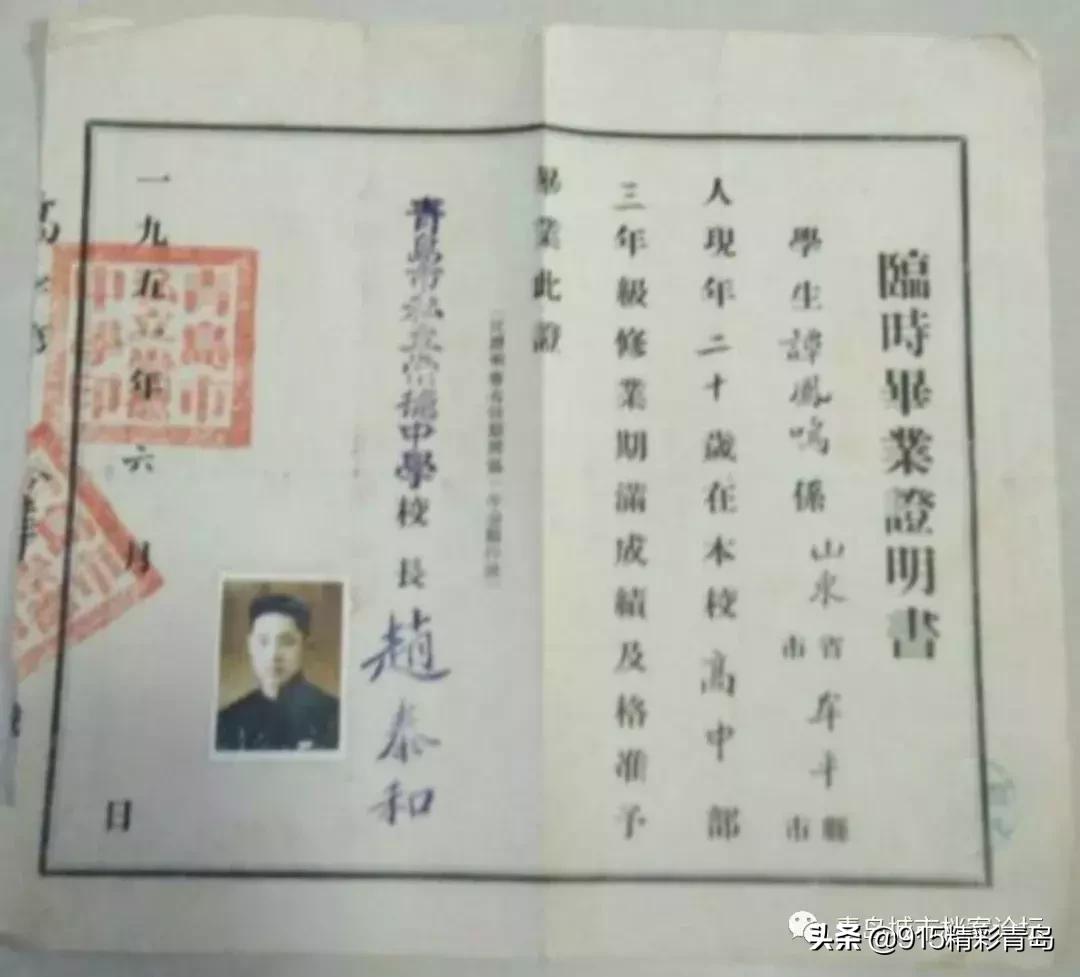 臨時畢業證明書
學生譚鳳鳴係山東省市牟平縣市
人現年二十歲在本校高中部
三年級修業期滿成績及格准予
畢業此證
青島市私立崇德中學校長趙泰和
一九五年六月日
青島市私立崇德中學印
青岛城市档案论坛
头条@915精彩青岛